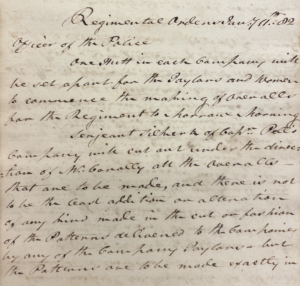 Regimental Orders Jany 7th 1782
Officer of the Police
One Hutt in each Company will
be set apart for the Taylors and Women
to commence the making of Overalls
for the Regiment to morrow morning
Serjeant of Capn
Company will cut out under the direc
tion of Mr. Conally all the Overalls
that are to be made, and there is not
to be the least addition or alteration
of any kind made in the cut or fashion
of the Patterns delivered to the Companies
by any of the Company Taylors but
the Patterns are to be made exactly in